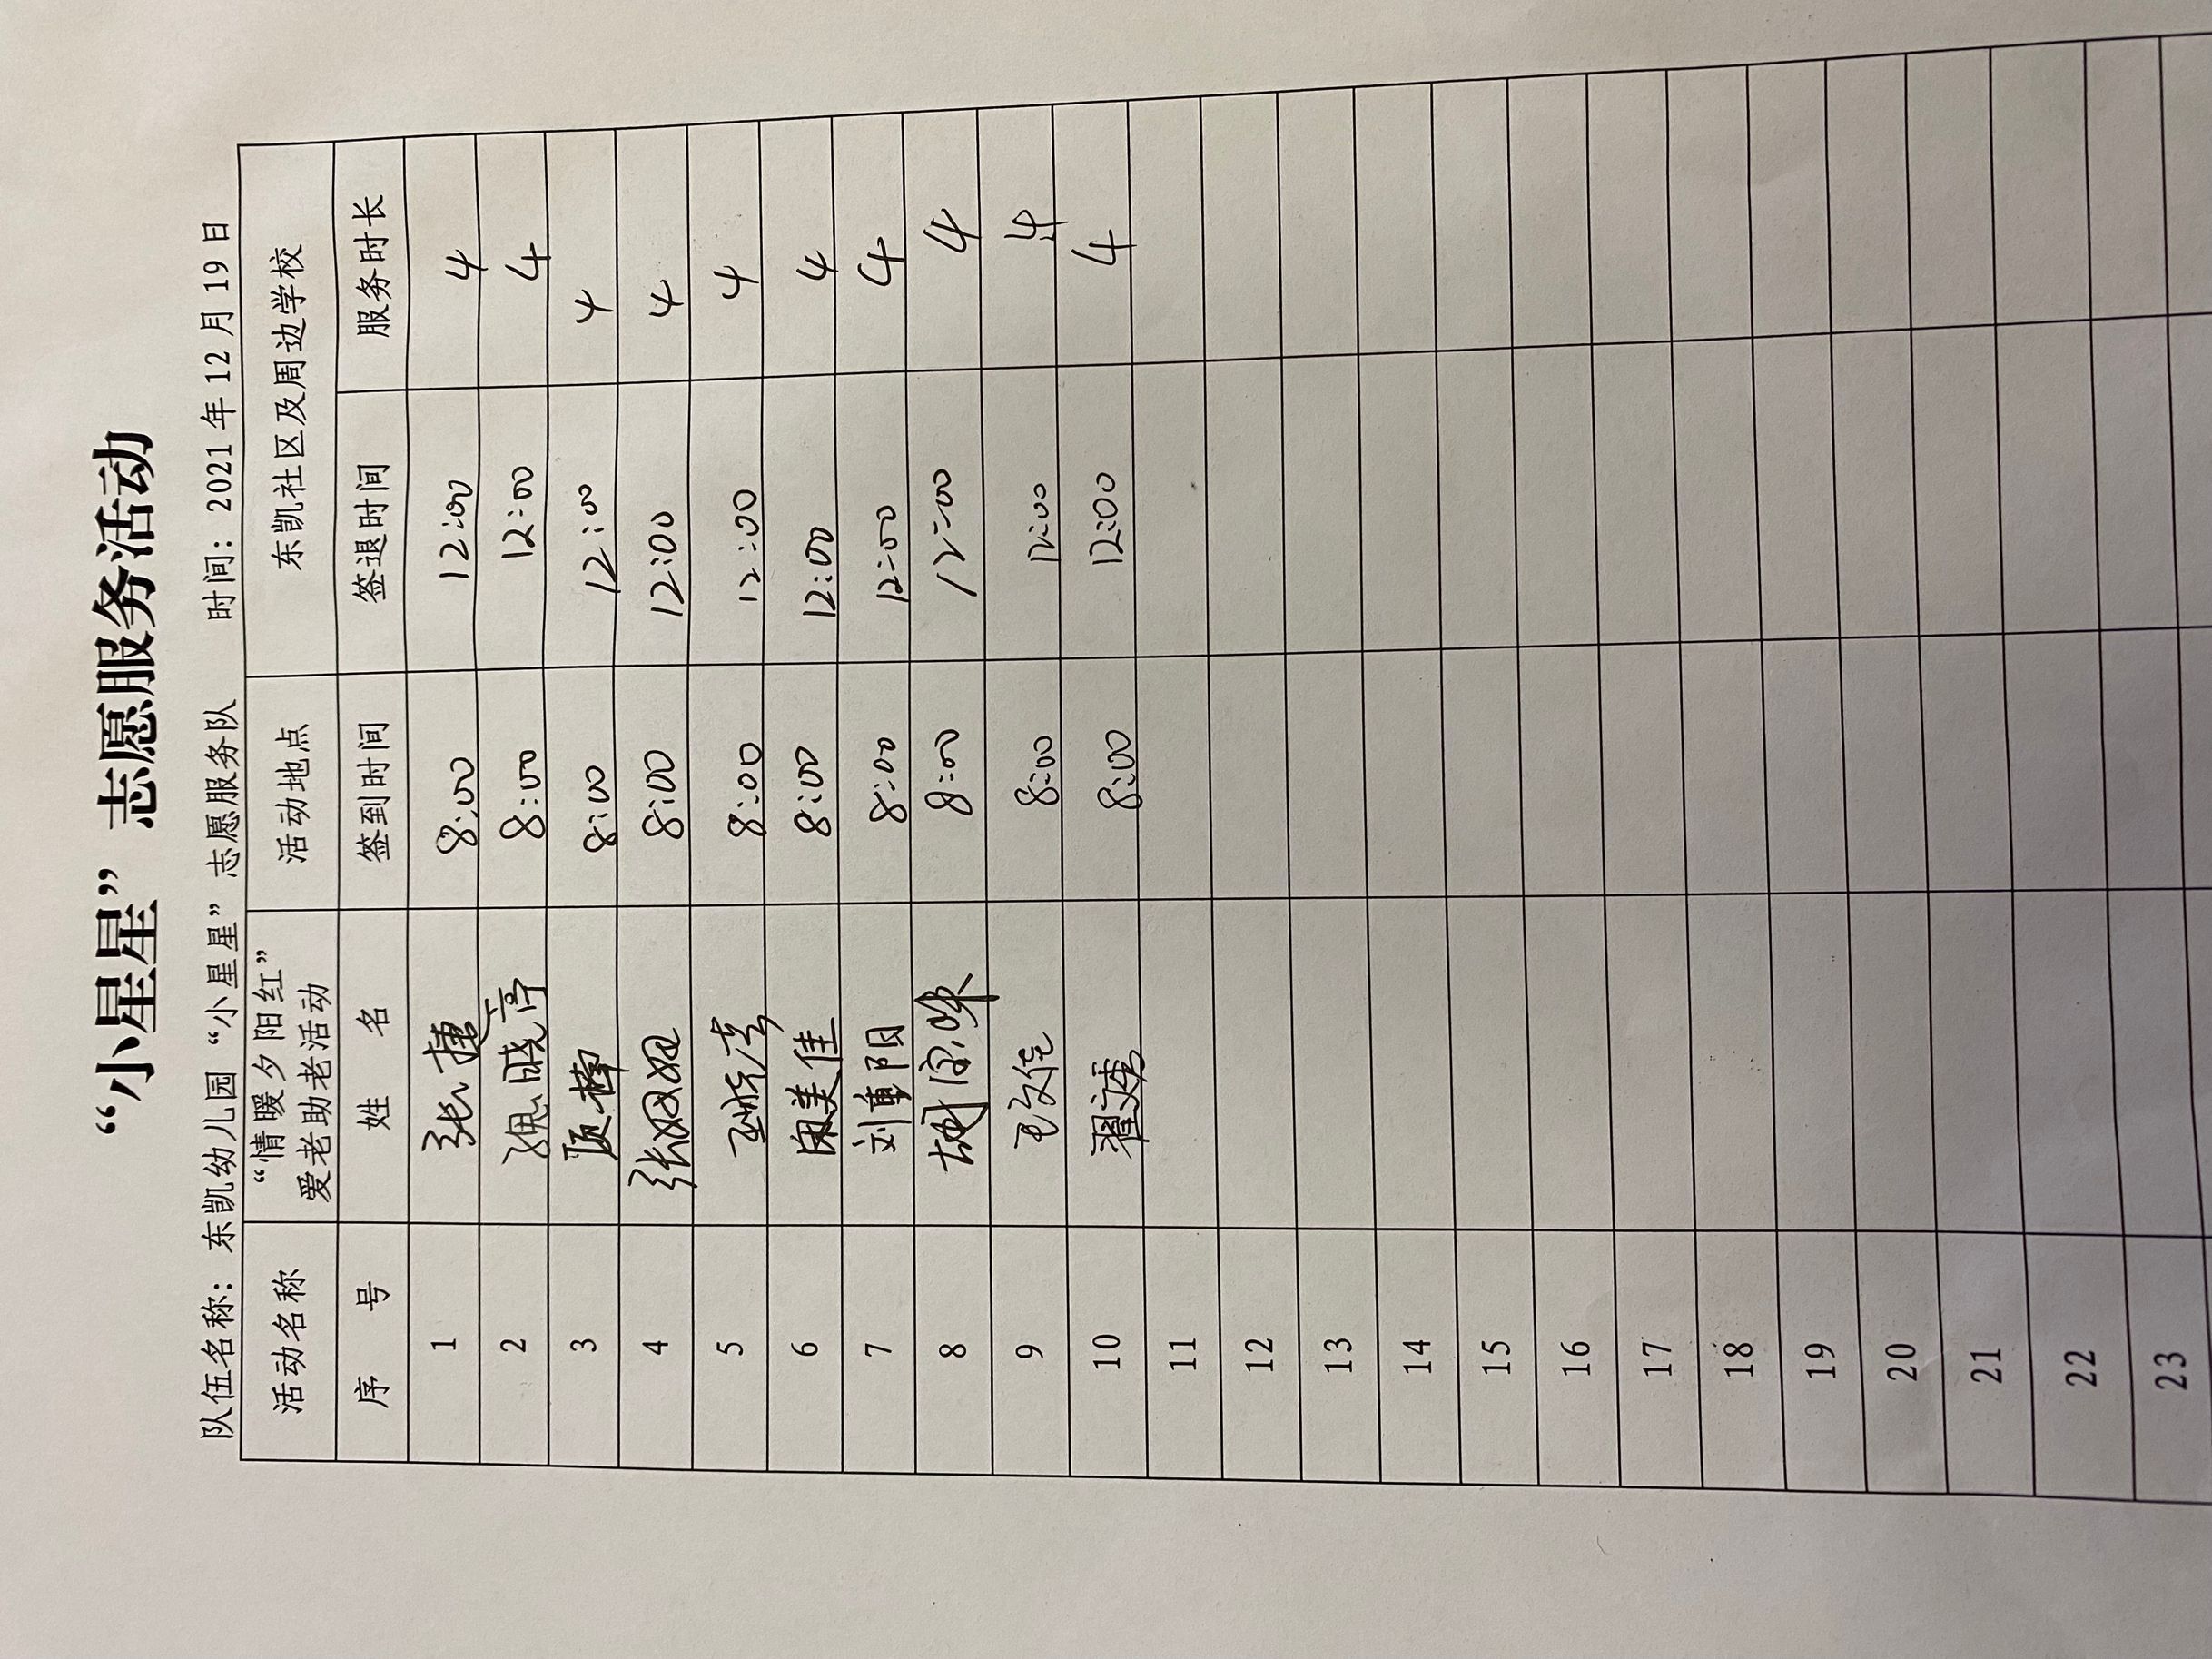 “小星星”志愿服务活动
队伍名称：东凯幼儿园“小星星”志愿服务队 时间：2021年12月19日
活动名称 “情暖夕阳红” 爱老助老活动 活动地点 东凯社区及周边学校
序 号 姓 名 签到时间 签退时间 服务时长
1 张捷 8:00 12:00 4
2 魏晓亭 8:00 12:00 4
3 8:00 12:00 4
4 张姗姗 8:00 12:00 4
5 8:00 12:00 4
6 美佳 8:00 12:00 4
7 刘重阳 8:00 12:00 4
8 8:00 12:00 4
9 8:00 12:00 4
10 8:00 12:00 4
11
12
13
14
15
16
17
18
19
20
21
22
23